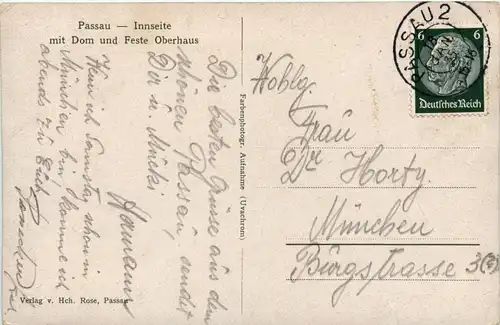 Passau — Innseite
mit Dom und Feste Oberhaus
Die besten Grüsse aus dem
schönen Passau, sendet
Dir u. Mucki
Hamann
Wenn ich Samstag schon in
München bin, komme ich
abends zu Euch.
Verlag v. Hch. Rose, Passau
Farbenphotogr. Aufnahme (Uvachrom)
PASSAU 2
6 6
Deutsches Reich
Wohlg.
Frau
Dr Horty
München
Burgstrasse 3